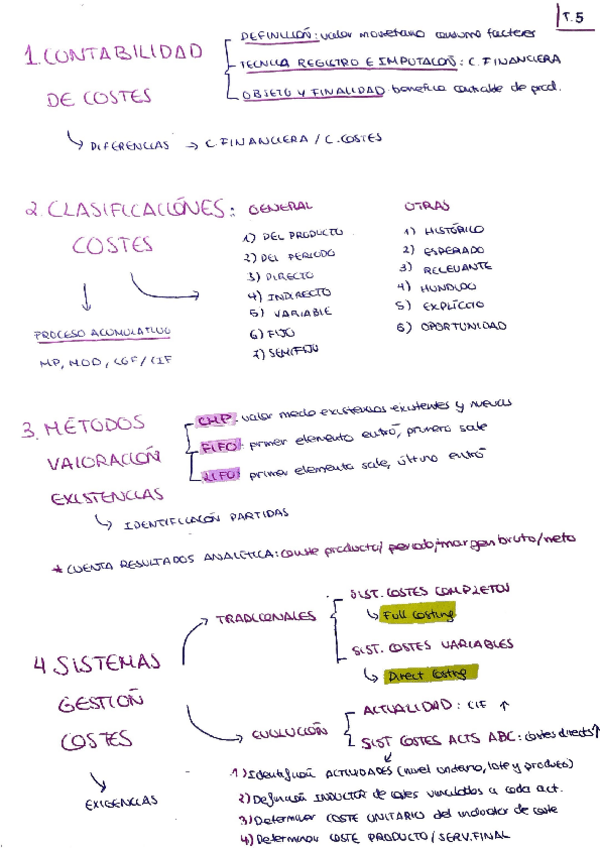 T.5
1. CONTABILIDAD DE COSTES
DEFINICIÓN: valor monetario consumo factores
TÉCNICA REGISTRO E IMPUTACIÓN: C. FINANCIERA
OBJETO Y FINALIDAD: beneficio contable de prod.
DIFERENCIAS → C. FINANCIERA / C. COSTES
2. CLASIFICACIONES: COSTES
GENERAL
1) DEL PRODUCTO
2) DEL PERIODO
3) DIRECTO
4) INDIRECTO
5) VARIABLE
6) FIJO
7) SEMIFIJO
OTRAS
1) HISTÓRICO
2) ESPERADO
3) RELEVANTE
4) HUNDIDO
5) EXPLÍCITO
6) OPORTUNIDAD
PROCESO ACUMULATIVO
MP, MOD, CGF / CIF
3. MÉTODOS
VALORACIÓN
EXISTENCIAS
CMP: valor medio existencias existentes y nuevas
FIFO: primer elemento entró, primero sale
LIFO: primer elemento sale, último entró
IDENTIFICACIÓN PARTIDAS
* CUENTA RESULTADOS ANALÍTICA: coste producto/ periodo, margen bruto/neto
4 SISTEMAS
GESTIÓN
COSTES
TRADICIONALES
SIST. COSTES COMPLETOS
Full Costing
SIST. COSTES VARIABLES
Direct Costing
EVOLUCIÓN
ACTUALIDAD: CIF ↑
SIST COSTES ACTS ABC: costes directs ↑
1) Identificación ACTIVIDADES (nivel unitario, lote y producto)
2) Definición INDUCTOR de costes vinculados a cada act.
3) Determinar COSTE UNITARIO del inductor de coste
4) Determinar COSTE PRODUCTO / SERV. FINAL
EXIGENCIAS